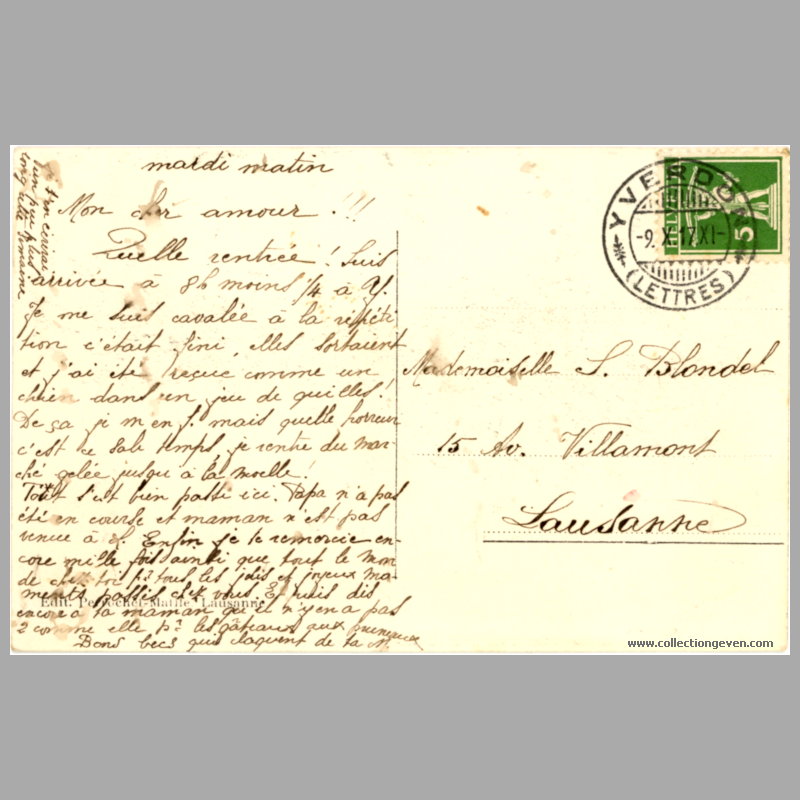 mardi matin
Mon cher amour !!!
Quelle rentrée ! Suis
arrivée à 8h moins 1/4 à Y.
Je me suis cavalée à la répéti
tion c'était fini, elles sortaient
et j'ai été reçue comme un
chien dans un jeu de quilles!
De ça je m'en f. mais quelle horreur
c'est ce sale temps, je rentre du mar-
ché gelée jusqu'à la moelle!
Tout s'est bien passé ici. Papa n'a pas
été en course et maman n'est pas
venue à Enfin je te remercie en-
core mille fois ainsi que tout le mon
de chez toi pr tous les jolis et joyeux mo-
ments passés chez vous. Et puis dis
encore à ta maman qu'il n'y en a pas
2 comme elle pr les gâteaux aux pruneaux
Bons becs qui claquent de ta M.
Je t'en écrirai
un peu plus
long cette semaine
Edit. Perrochet-Matile, Lausanne
YVERDON
-9.X.17.XI-
(LETTRES)
HELVETIA
5
Mademoiselle S. Blondel
15 Av. Villamont
Lausanne
www.collectiongeven.com